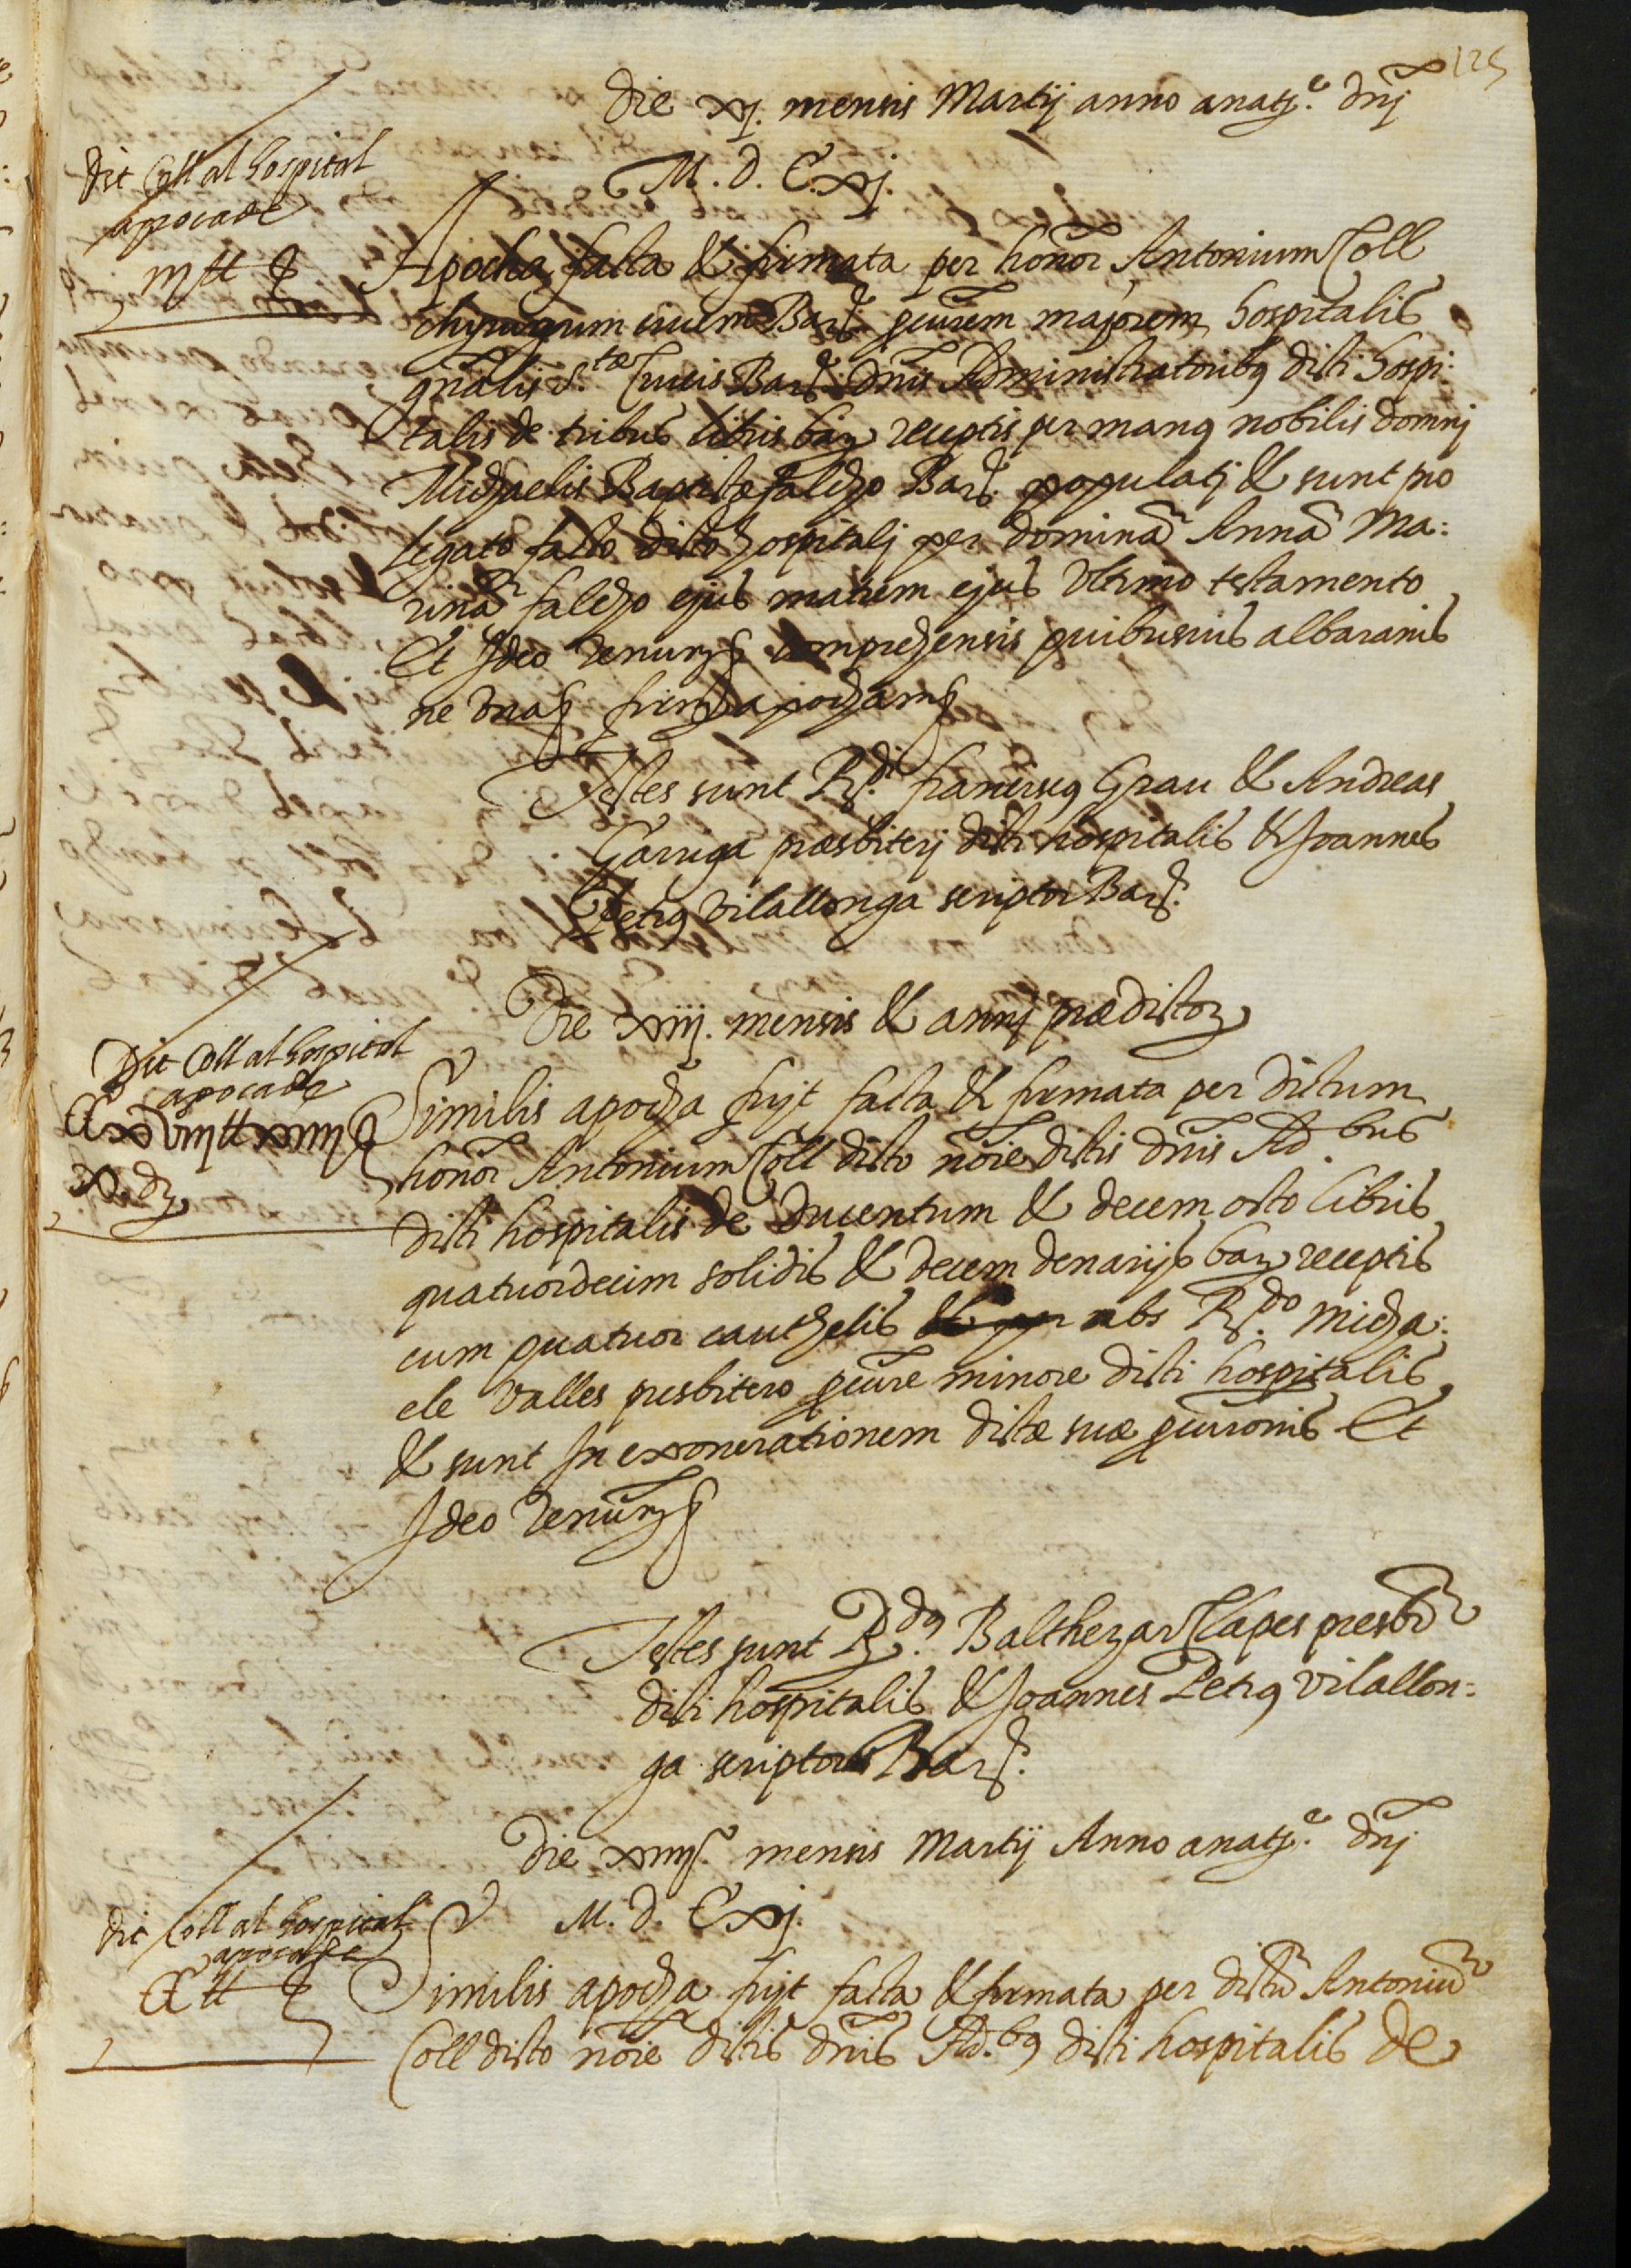 125
Die xj. mensis Martij anno a natte. dnj
M. D. C. xj.
Dit Coll al hospital
apoca de
iij ll ẞ
Apocha facta & firmata per honor Antonium Coll
chyrurgum civem Bars. gcurem majorem hospitalis
gnalis S.tæ Crucis Barñe. dnis Administratoribq dicti hospi:
talis de tribus libris barz receptis per manq nobilis domnj
Michaelis Baptistæ falcho Bars. populatj & sunt pro
legato facto dicto hospitalj per dominã Annã Ma:
rinã falcho ejus matrem ejus ultimo testamento
Et Ideo renuns comprehensis quibusvis albaranis
ne duas firms apochams
Testes sunt Rdi. franciscq Grau & Andreas
Garriga præsbiterj dicti hospitalis & Joannes
Petrq Vilallonga scriptor Bars.
Die xiiij. mensis & annj prædictoz
Dit Coll al hospital
apoca de
CCxviij ll xiiij ẞ
x dz
Similis apocha fujt facta & firmata per dictum
honor Antonium Coll dicto noie dictis dnis Ad.bus
dicti hospitalis de Ducentum & decem octo libris
quatuordecim solidis & decem denarijs barz receptis
cum quatuor cauthelis abs Rdo. Micha:
ele Valles presbitero gcure minore dicti hospitalis
& sunt In exonerationem dictæ suæ gcuronis Et
Ideo renuns
Testes sunt Rdq. Balthezar Clapes presbr
dicti hospitalis & Joannes Petrq Vilallon:
ga scriptor Bars.
Die xiiij. mensis Martij Anno a natte. dnj
M. D. C xj.
Dit Coll al hospital
apoca de
C ll ẞ
Similis apocha fujt facta & firmata per dictũ Antoniũ
Coll dicto noie dictis dnis Ad.bq dicti hospitalis de